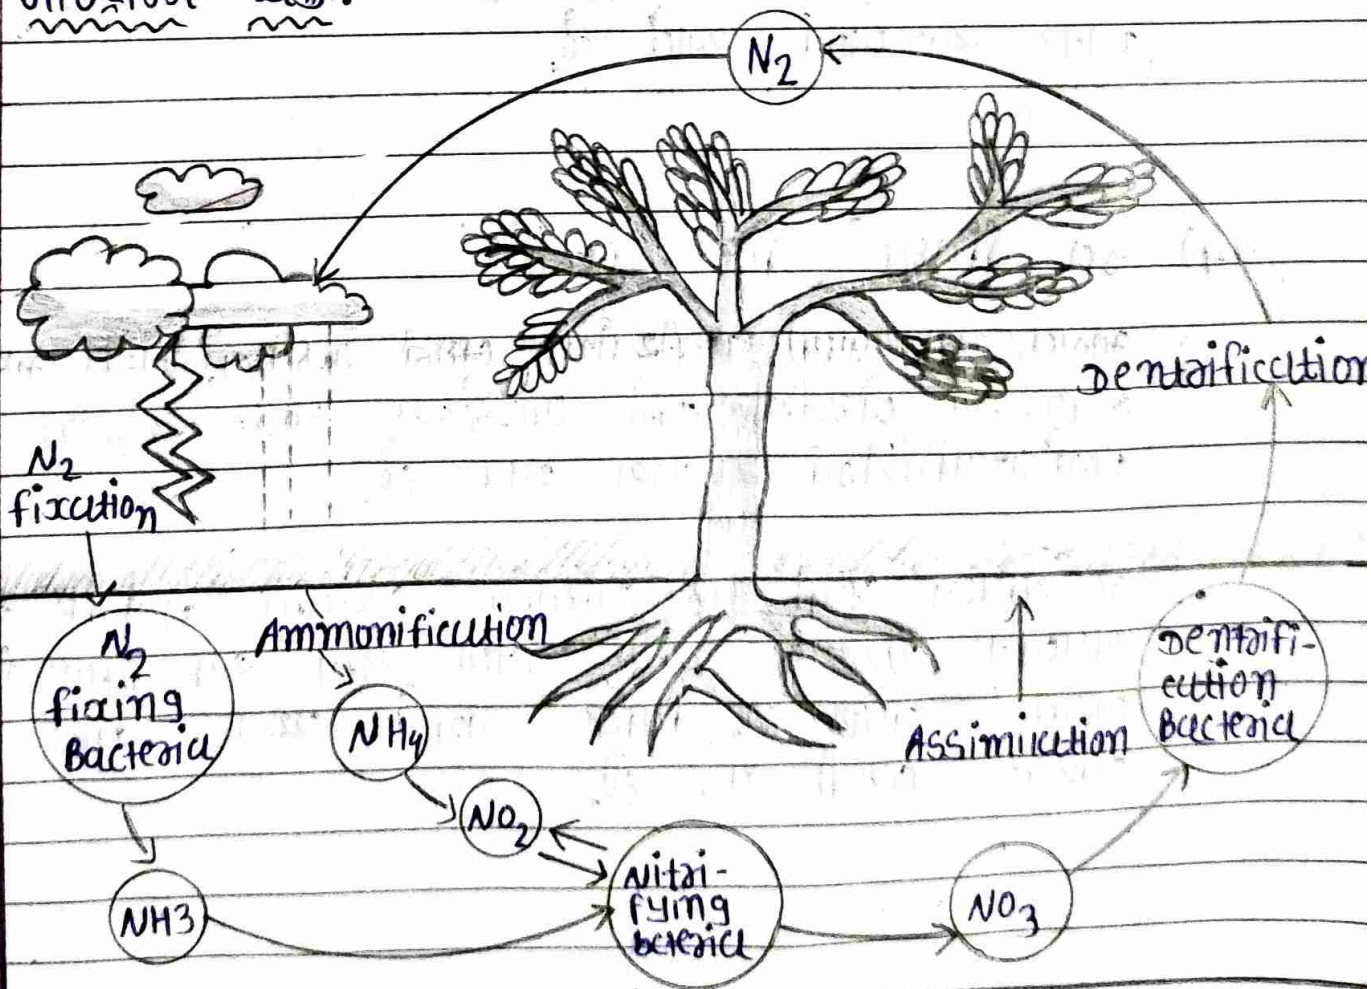 N2
N2
fixation
Dentrification
N2
fixing
Bacteria
Ammonification
NH4
NO2
NH3
Nitri-
fying
bcteria
NO3
Assimilation
Dentrifi-
cation
Bacteria